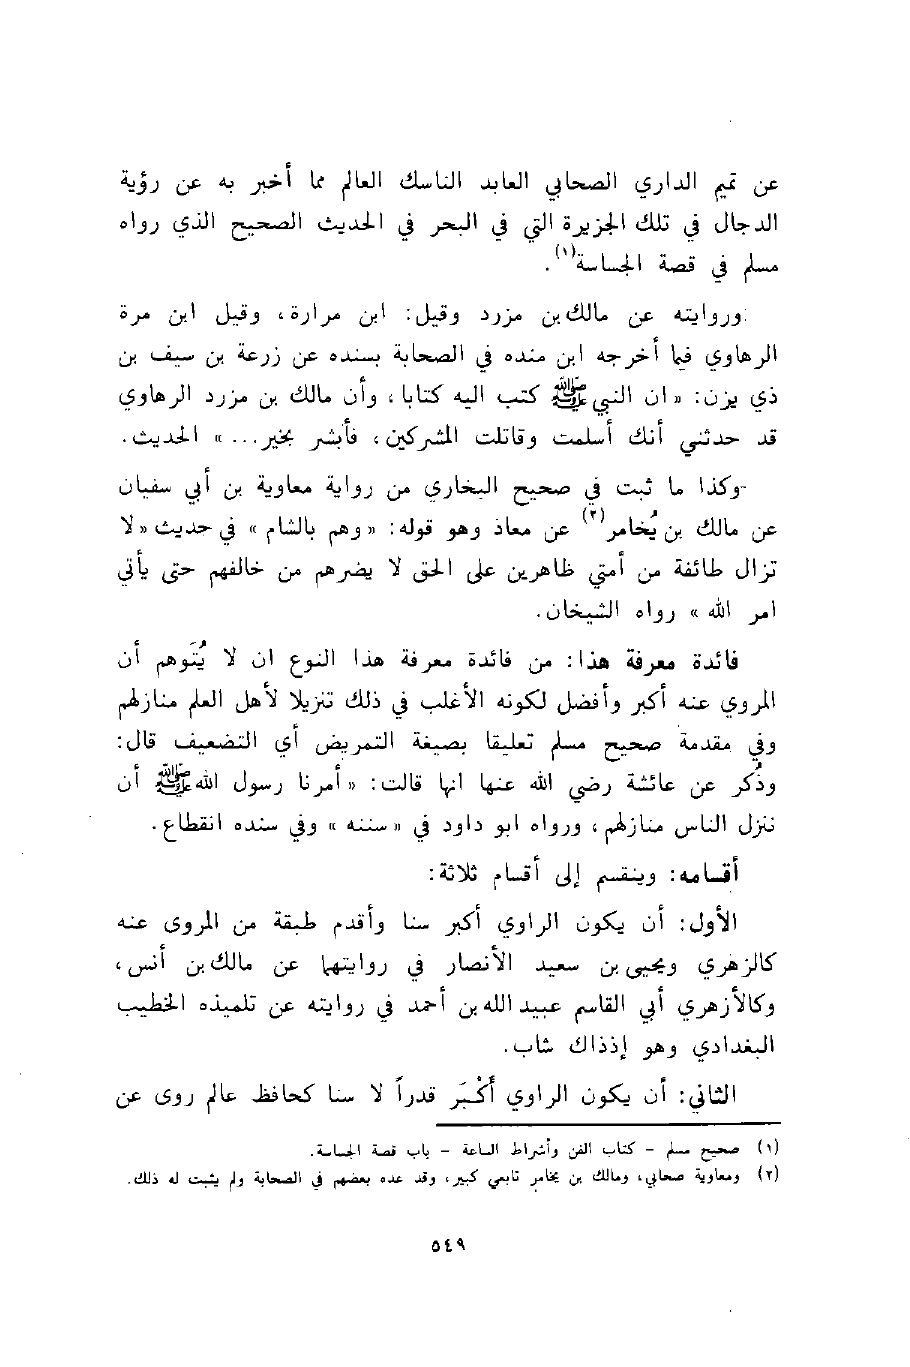 عن تميم الداري الصحابي العابد الناسك العالم مما أخبر به عن رؤية
الدجال في تلك الجزيرة التي في البحر في الحديث الصحيح الذي رواه
مسلم في قصة الجساسة(١).
وروايته عن مالك بن مزرد وقيل: ابن مرارة، وقيل ابن مرة
الرهاوي فيما أخرجه ابن منده في الصحابة بسنده عن زرعة بن سيف بن
ذي يزن: «ان النبي ﷺ كتب اليه كتابا، وأن مالك بن مزرد الرهاوي
قد حدثني أنك أسلمت وقاتلت المشركين، فأبشر بخير... » الحديث.
-وكذا ما ثبت في صحيح البخاري من رواية معاوية بن أبي سفيان
عن مالك بن يُخامر(٢) عن معاذ وهو قوله: «وهم بالشام » في حديث «لا
تزال طائفة من أمتي ظاهرين على الحق لا يضرهم من خالفهم حتى يأتي
امر الله » رواه الشيخان.
فائدة معرفة هذا: من فائدة معرفة هذا النوع ان لا يُتَوهم أن
المروي عنه أكبر وأفضل لكونه الأغلب في ذلك تنزيلا لأهل العلم منازلهم
وفي مقدمة صحيح مسلم تعليقا بصيغة التمريض أي التضعيف قال:
وذُكر عن عائشة رضي الله عنها انها قالت: «أمرنا رسول الله ﷺ أن
ننزل الناس منازلهم، ورواه ابو داود في «سننه » وفي سنده انقطاع.
أقسامه: وينقسم إلى أقسام ثلاثة:
الأول: أن يكون الراوي أكبر سنا وأقدم طبقة من المروى عنه
كالزهري ويحيى بن سعيد الأنصار في روايتها عن مالك بن أنس،
وكالأزهري أبي القاسم عبيد الله بن أحمد في روايته عن تلميذه الخطيب
البغدادي وهو إذذاك شاب.
الثاني: أن يكون الراوي أَكْبَر قدراً لا سنا كحافظ عالم روى عن
(١) صحيح مسلم - كتاب الفتن وأشراط الساعة - باب قصة الجساسة.
(٢) ومعاوية صحابي، ومالك بن يخامر تابعي كبير، وقد عده بعضهم في الصحابة ولم يثبت له ذلك.
٥٤٩